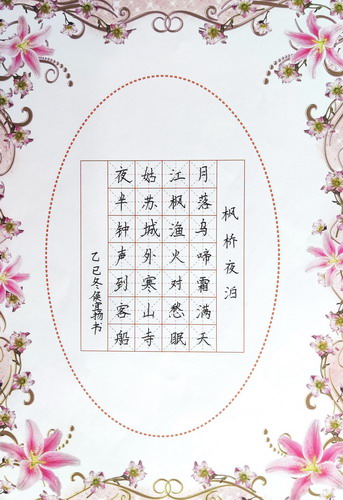 枫桥夜泊
月落乌啼霜满天
江枫渔火对愁眠
姑苏城外寒山寺
夜半钟声到客船
乙巳冬侯宝杨书